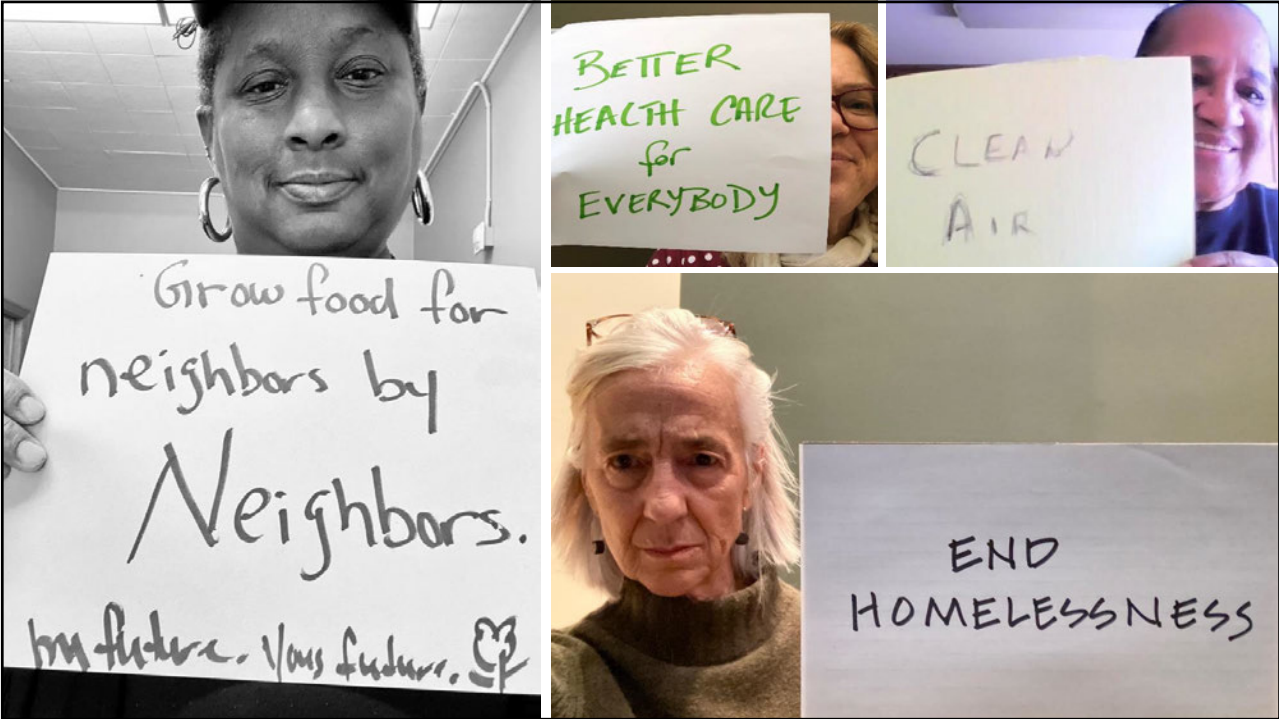 Grow food for
neighbors by
Neighbors.
my future. Your future.
BETTER
HEALTH CARE
for
EVERYBODY
CLEAN
AIR
END
HOMELESSNESS